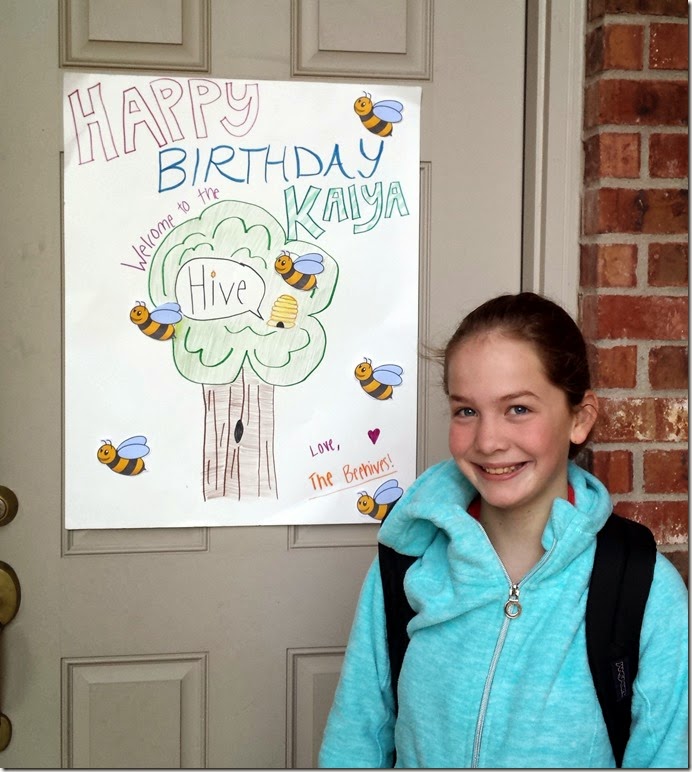 HAPPY
BIRTHDAY
KAIYA
Welcome to the
Hive
Love,
The Beehives!